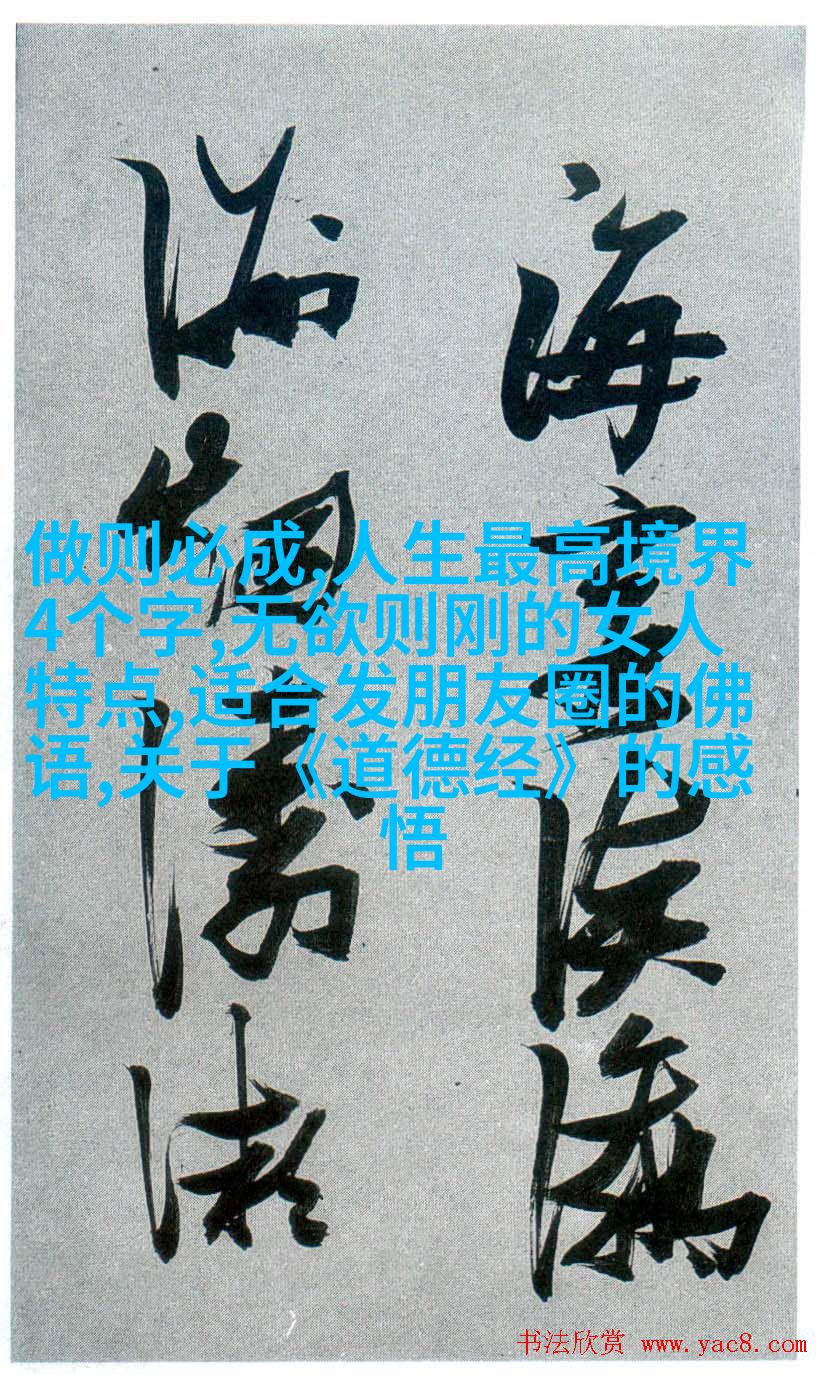 海
做则必成,人生最高境界
4个字,无欲则刚的女人
特点,适合发朋友圈的佛
语,关于《道德经》的感
悟
书法欣赏 www.yac8.com